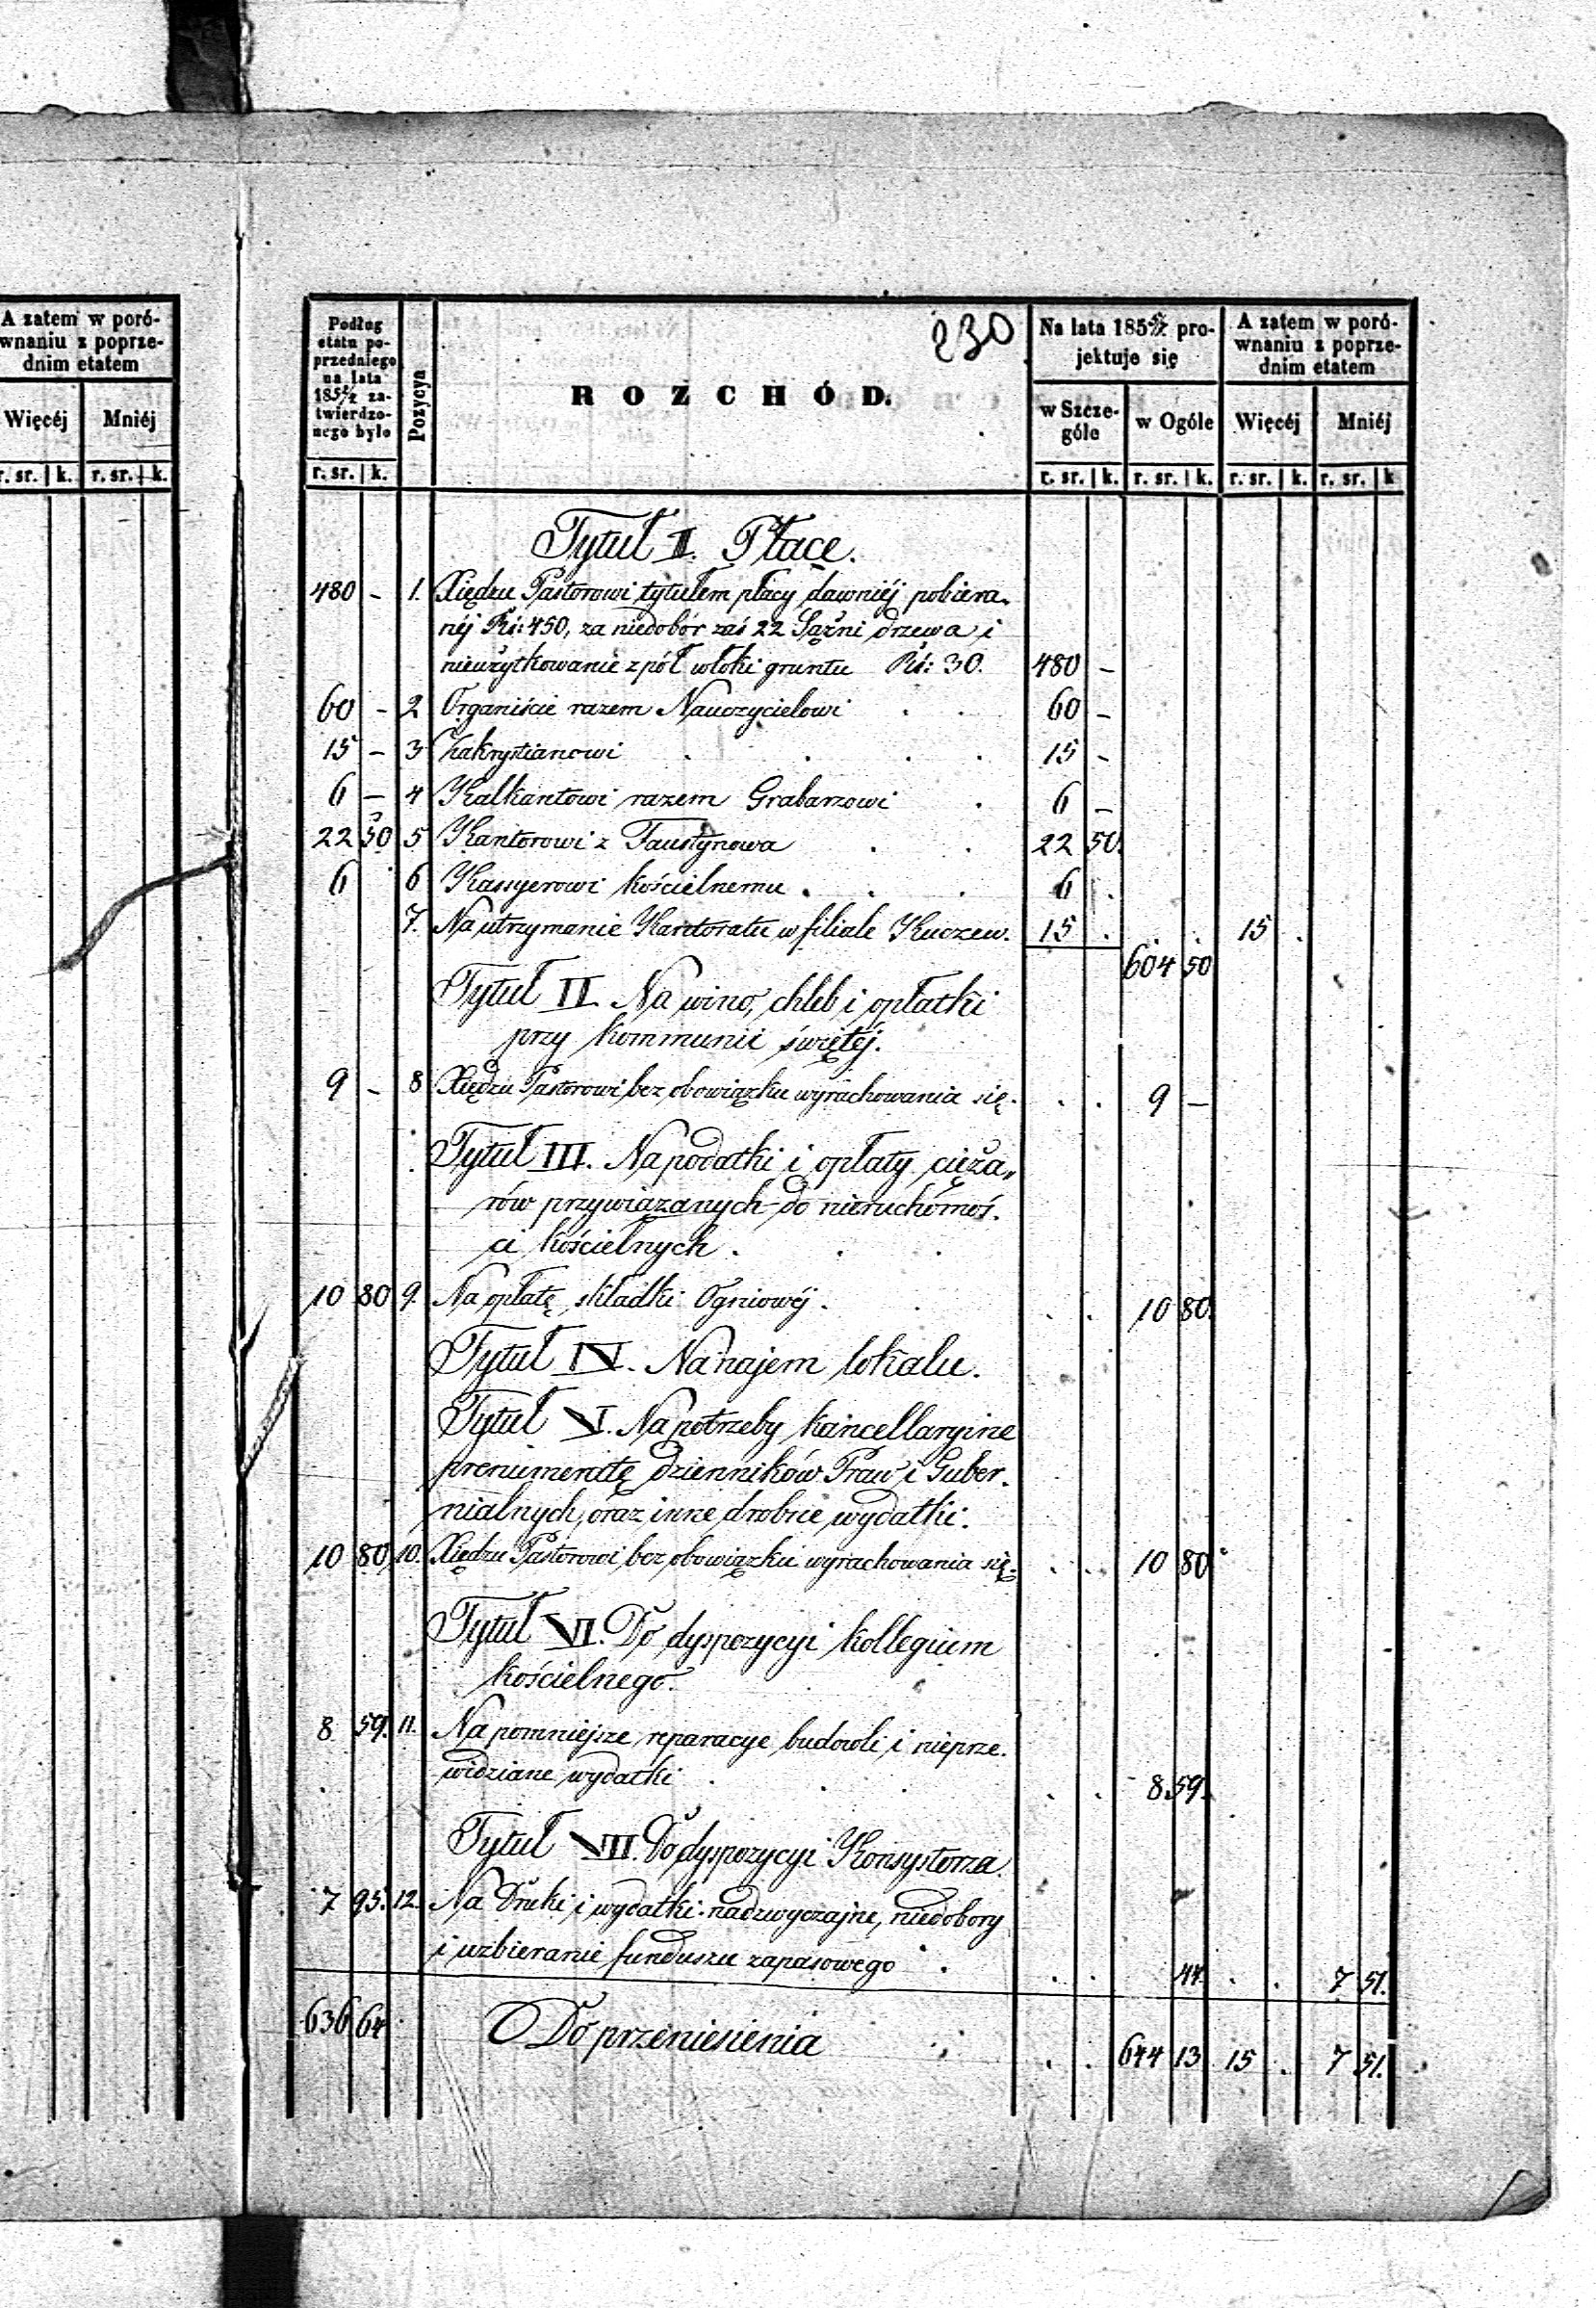 A zatem w poró-
wnaniu z poprze-
dnim etatem
Więcéj Mniéj
r. sr. k. r. sr. k.
230
Podług
etatu po-
przedniego
na lata
za-
twierdzo-
nego było
r. sr. k.
Pozycya
ROZCHÓD.
Na lata pro-
jektuje się
w Szcze-
góle
w Ogóle
r. sr. k. r. sr. k.
A zatem w poró-
wnaniu z poprze-
dnim etatem
Więcéj Mniéj
r. sr. k. r. sr. k
Tytuł I. Płace.
480 - 1. Xiędzu Pastorowi tytułem płacy dawniéj pobiera-
néj Rs: 450, za niedobór zaś 22 Sążni drzewa i
nieużytkowanie z pół włóki gruntu Rs: 30. 480 -
60 - 2 Organiście razem Nauczycielowi . . 60 -
15 - 3 Zakrystianowi . . . . 15 -
6 - 4 Kalkantowi razem Grabarzowi . 6 -
22 50 5 Kantorowi z Faustynowa . . 22 50.
6 6 Kassyerowi kościelnemu . . . 6 .
7. Na utrzymanie Kantoratu w filiale Kuczew. 15 . . . 15 .
604 50
Tytuł II. Na wino, chleb i opłatki
przy kommunii świętéj.
9 - 8 Xiędzu Pastorowi bez obowiązku wyrachowania się . . . 9 -
Tytuł III. Na podatki i opłaty cięża„
rów przywiązanych do nieruchomoś.
ci kościelnych . . .
10 80 9. Na opłatę składki Ogniowéj . . . . 10 80.
Tytuł IV. Na najem lokalu.
Tytuł V. Na potrzeby kancellaryine
prenumeratę dzienników Praw i Guber.
nialnych, oraz inne drobne wydatki.
10 80 10. Xiędzu Pastorowi bez obowiązku wyrachowania się . . . 10 80
Tytuł VI. Do dyspozycyi kollegium
kościelnego.
8 59. 11. Na pomniejsze reparacye budowli i nieprze.
widziane wydatki . . . . . 8 59.
Tytuł VII. Do dyspozycyi Konsystorza
7 95. 12. Na Druki i wydatki nadzwyczajne, niedobory
i uzbieranie funduszu zapasowego . . . 44 . . 7 51.
636 64 Do przeniesienia . . . 644 13 15 . 7 51.